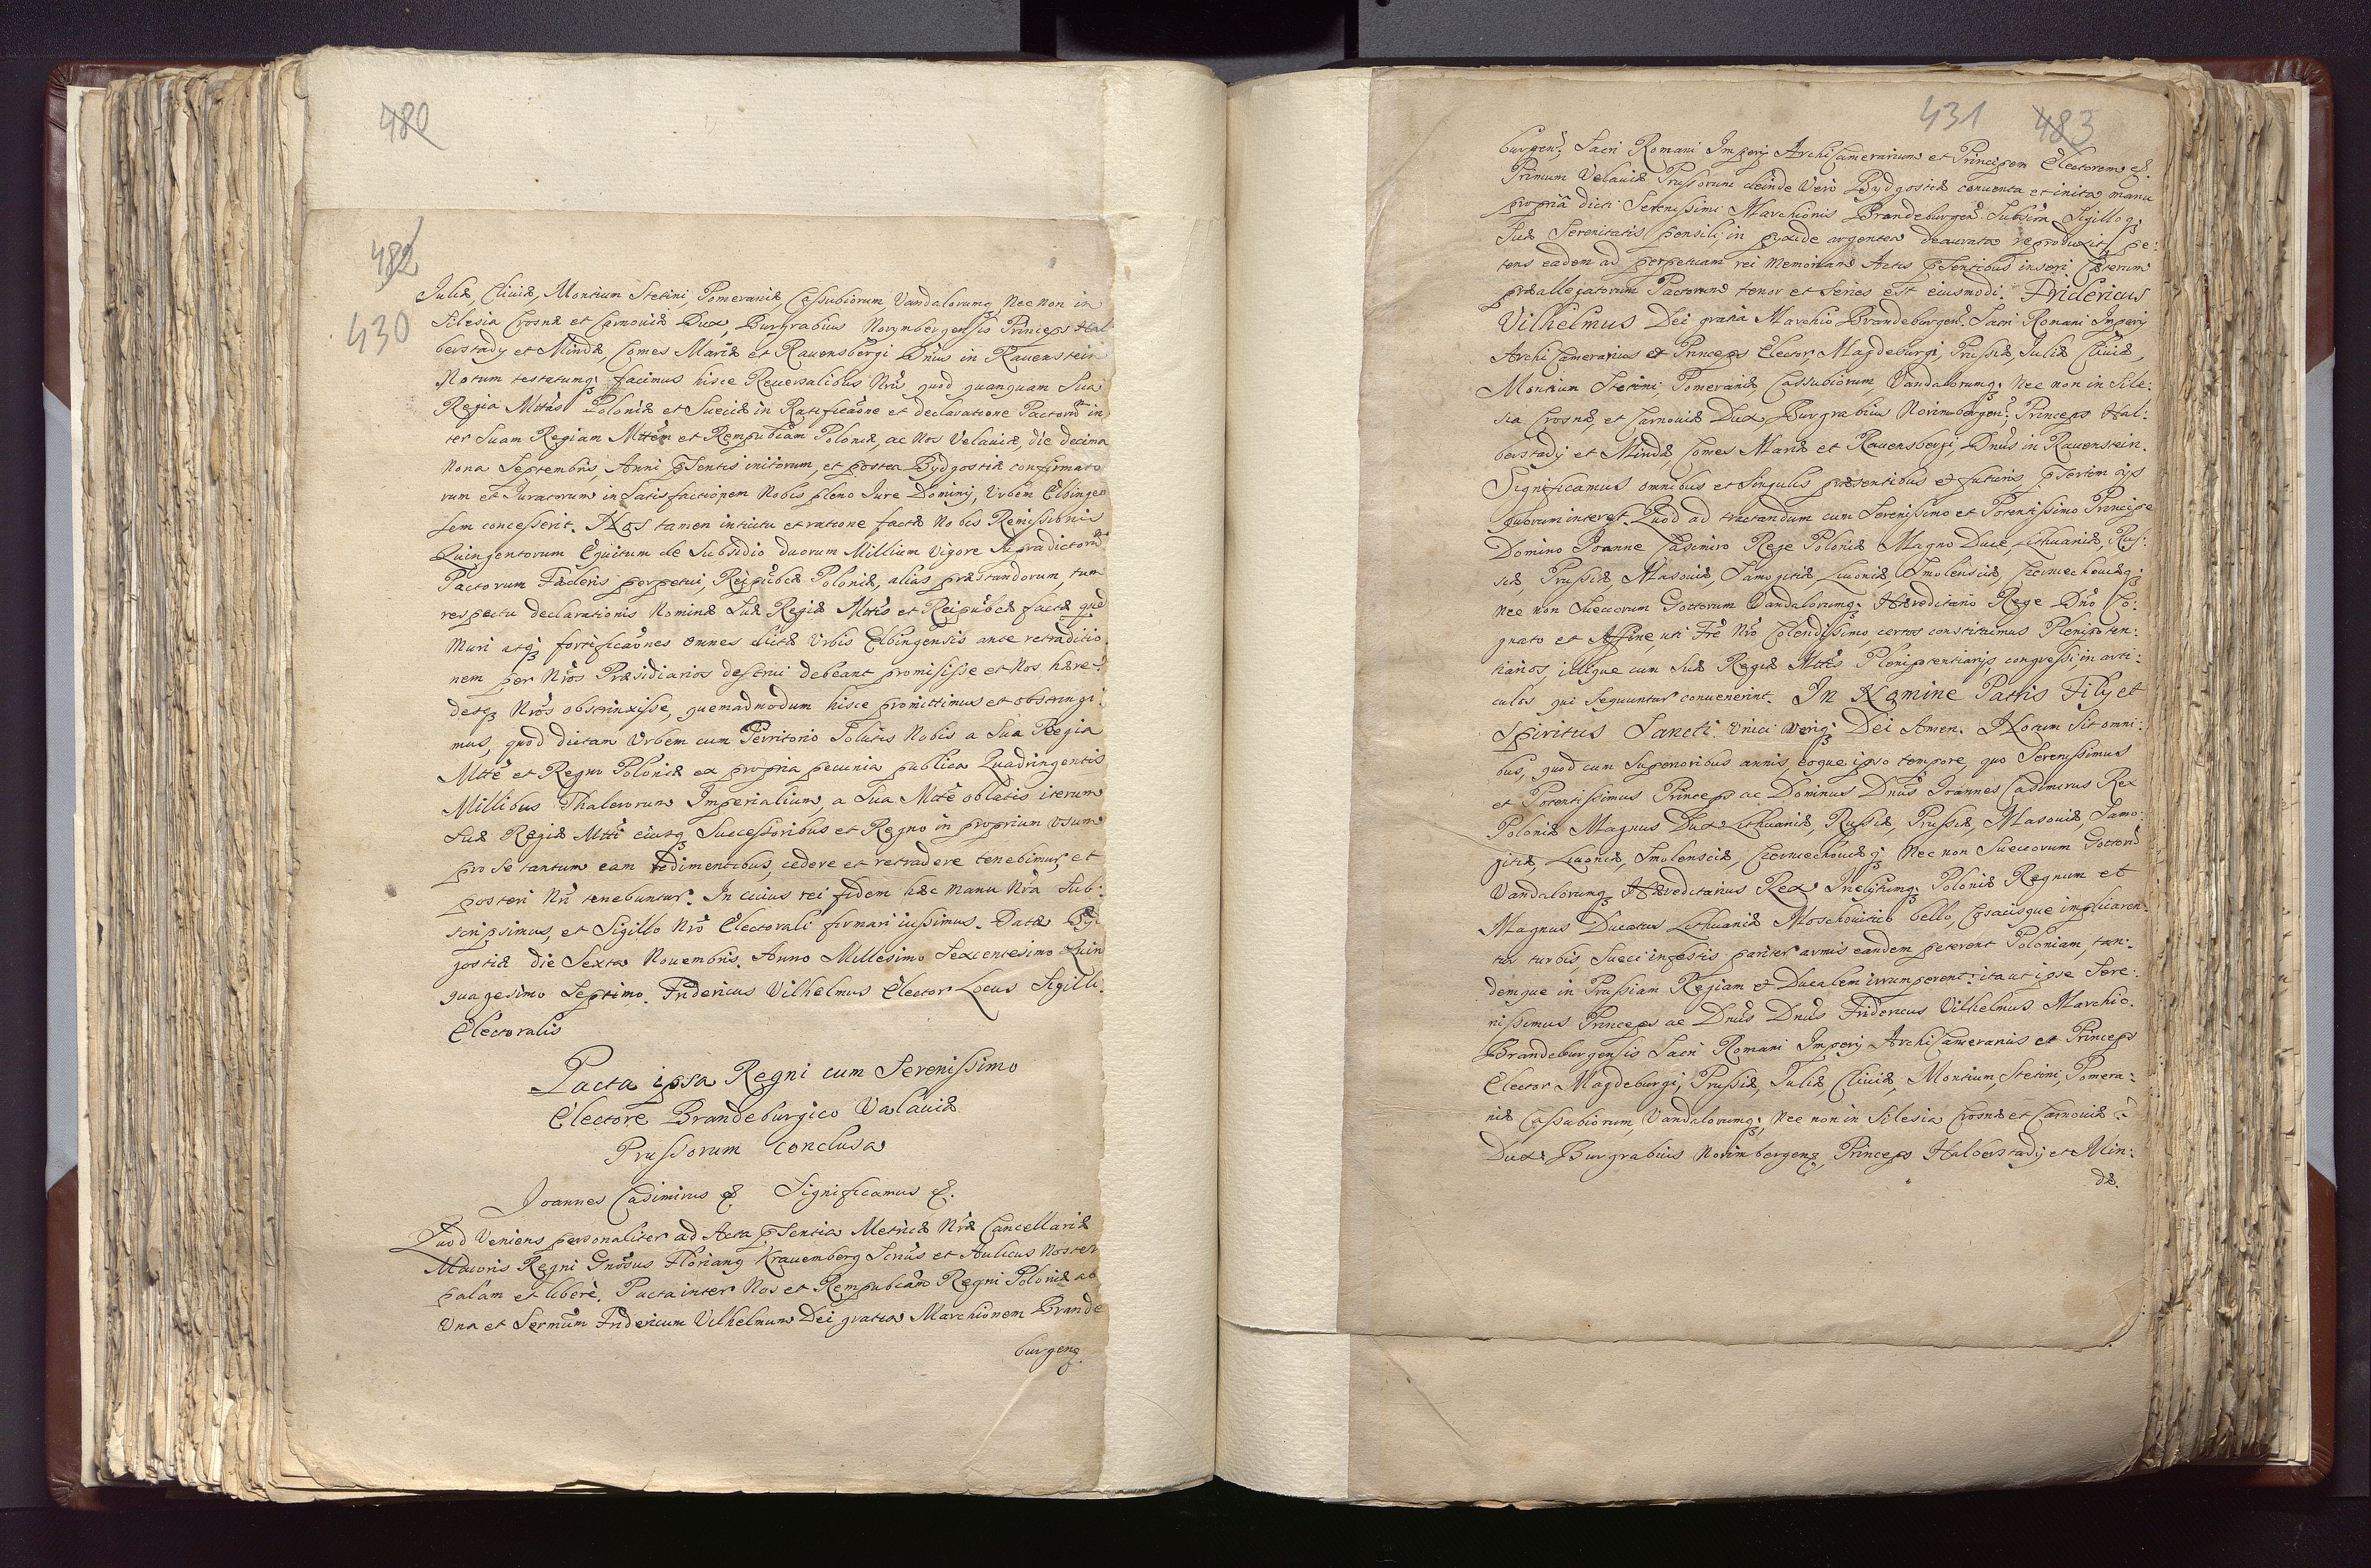 480
482
430
Juliæ, Cliuiæ, Montium Stetini, Pomeraniæ, Cassubiorum Vandalorumq; Nec non in
Silesia Crosnæ et Carnouiæ Dux, Burgrabius Norymbergensis Princeps Hal
berstadij et Mindæ, Comes Mariæ et Rauensbergi Dnus in Rauenstein
Notum testatumq; facimus hisce Reuersalibus Nris quod quanquam Sua
Regia Mttas Poloniæ et Sueciæ in Ratificaone et declaratione Pactorum in
ter Suam Regiam Mttem et Rempublcam Poloniæ, ac Nos Velauiæ, die decima
nona Septembris, Anni psentis initorum, et postea Bydgostiæ confirmato
rum et Juratorum in Satisfactionem Nobis pleno Jure Dominij, Urbem Elbingen
sem concesserit. Nos tamen intuitu et ratione factæ Nobis Remissionis
Quingentorum Equitum de Subsidio duorum Millium Vigore Supradictorum
Pactorum Fæderis perpetui, Reipublcæ Poloniæ, alias præstandorum, tum
respectu declarationis Nomine Suæ Regiæ Mttis et Reipublcæ factæ quod
Muri atq; fortificaones omnes dictæ Urbis Elbingensis ante retraditio
nem per Nros Præsidiarios destrui debeant promisisse et Nos hære-
desq; Nros obstrinxisse, quemadmodum hisce promittimus et obstringi
mus, quod dictam Urbem cum Territorio Solutis Nobis a Sua Regia
Mtte et Regno Poloniæ ex propria pecunia publica Quadringentis
Millibus Thalerorum Imperialium, a Sua Mtte oblatis iterum
Suæ Regiæ Mtti eiusq; Successoribus et Regno in proprium usum
pro se tantum eam redimentibus, cedere et retradere tenebimur, et
posteri Nri tenebuntur. In cuius rei fidem hæc manu Nra Sub:
scripsimus, et Sigillo Nro Electorali firmari iussimus. Data Byd
gostiæ die Sexta Nouembris. Anno Millesimo Sexcentesimo Quin
quagesimo Septimo. Fridericus Vilhelmus Elector Locus Sigilli
Electoralis
Pacta ipsa Regni cum Serenissimo
Electore Brandeburgico Valauiæ
Prussorum Conclusa
Joannes Casimirus &. Significamus &.
Quod Veniens personaliter ad Acta psentia Metricæ Nræ Cancellariæ
Maioris Regni Gnosus Florianq Krauemberg Scrius et Aulicus Noster
palam et liberè. Pacta inter Nos et Rempublcam Regni Poloniæ ab
Una et Sermum Fridericum Vilhelmum Dei gratia Marchionem Brande
burgenq
431 483
burgen: Sacri Romani Imperij ArchiCamerarium et Principem Electorem &.
Primum Velauiæ Prussorum deinde Verò Bydgostiæ conuenta et inita manu
propriâ dicti Serenissimi Marchionis Brandeburgen: Subscra Sigilloq;
Suæ Serenitatis pensili, in pyxide argentea deaurata reproduxit, pe:
tens eadem ad perpetuam rei Memoriam Actis psentibus inseri. Cæterum
præallegatorum Pactorum tenor et Series est eiusmodi. Fridericus
Vilhelmus Dei gratia Marchio Brandeburgen: Sacri Romani Imperij
ArchiCamerarius et Princeps Elector Magdeburgi, Prussiæ, Juliæ Cliuiæ,
Montium Stetini, Pomeraniæ, Cassubiorum, Vandalorumq; Nec non in Sile:
sia Crosnæ, et Carnouiæ Dux, Burgrabius Norimbergen: Princeps Hal:
berstadij et Mindæ, Comes Mariæ et Rauensbergi, Dnus in Rauenstein.
Significamus omnibus et Singulis præsentibus et futuris, psertim ijs
quorum interest. Quod ad tractandum cum Serenissimo et Potentissimo Principe
Domino Joanne Casimiro Rege Poloniæ Magno Duce Lithuaniæ, Rus:
siæ, Prussiæ Masouiæ, Samogitiæ, Liuoniæ Smolensciæ, Czerniechouiæq;
Nec non Sueccorum Gottorum Vandalorumq; Hæreditario Rege Dno Co:
gnato et Affine, uti Fre Nro Colendissimo, certos constituimus Plenipoten:
tiarios, iidque cum Suæ Regiæ Mttis Plenipotentiarijs, congressi, in arti:
culos qui Sequuntur conuenerint. In Nomine Patris Filij et
Spiritus Sancti. Unici Veriq; Dei Amen. Notum Sit omni:
bus, quod cum Superioribus annis, eoque ipso tempore, quo Serenissimus
et Potentissimus Princeps ac Dominus Dnus Joannes Casimirus Rex
Poloniæ Magnus Dux Lithuaniæ, Russiæ, Prussiæ, Masouiæ, Samo:
gitiæ, Liuoniæ, Smolensciæ, Czerniechouiæq; Nec non Sueccorum Gottorum
Vandalorumq; Hæreditarius Rex Inclytumq; Poloniæ Regnum et
Magnus Ducatus Lithuaniæ Moschouitico bello, Cosacisque implicaren
tur turbis, Sueci infestis pariter armis eandem peterent Poloniam, tan:
demque in Prussiam Regiam et Ducalem irrumperent: ita ut ipse Sere:
nissimus Princeps ac Dnus Dnus Fridericus Vilhelmus Marchio
Brandeburgensis Sacri Romani Imperij ArchiCamerarius et Princeps
Elector Magdeburgi, Prussiæ, Juliæ, Cliuiæ, Montium, Stetini, Pomera:
niæ Cassubiorum, Vandalorumq; Nec non in Silesia Crosnæ et Carnouiæ
Dux Burgrabius Norimbergenq, Princeps Halberstadij et Min:
dæ.